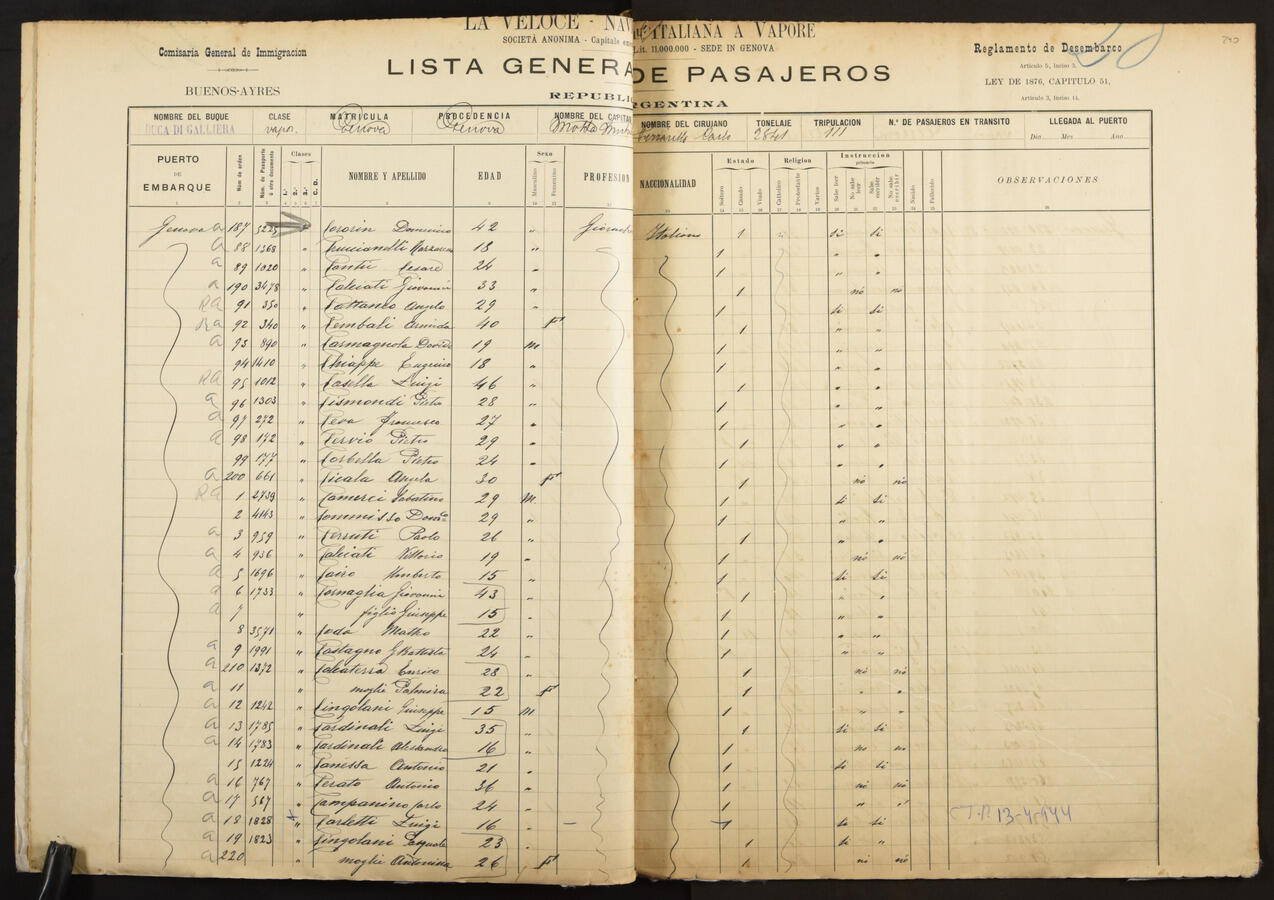 LA VELOCE - NAV ITALIANA A VAPORE
SOCIETÀ ANONIMA - Capitale em Lit. 11.000.000 - SEDE IN GENOVA
Comisaria General de Immigracion
BUENOS-AYRES
LISTA GENERA DE PASAJEROS
REPUBLI RGENTINA
Reglamento de Desembarco
Articulo 5, Inciso 3,
LEY DE 1876, CAPITULO 51,
Articulo 3, Inciso 14,
NOMBRE DEL BUQUE CLASE MATRICULA PROCEDENCIA NOMBRE DEL CAPITAN NOMBRE DEL CIRUJANO TONELAJE TRIPULACION N.° DE PASAJEROS EN TRANSITO LLEGADA AL PUERTO
DUCA DI GALLIERA vapor. Genova Genova Carlo 111 Dia Mes Ano
PUERTO DE EMBARQUE Núm de orden Núm. de Pasaporte ó otro documento Clases 1.a 2.a 3.a C. D. NOMBRE Y APELLIDO EDAD Sexo Masculino Femenino PROFESION NACCIONALIDAD Estado Soltero Casado Viudo Religion Catolico Protestante Varios Instruccion primaria Sabe leer No sabe leer Sabe escribir No sabe escribir Nacido Fallecido OBSERVACIONES
Genova a 187 5225 Domenico 42 " Italiano 1 si si
a 88 1368 " 18 " 1 " "
a 89 1020 " Cesare 24 " 1 " "
a 190 3478 " Calciati Giovanni 33 " 1 no no
RA 91 350 " Cattaneo Angelo 29 " 1 si si
Ra 92 340 " Cembali Armida 40 F 1 " "
a 93 890 " Carmagnola David 19 M 1 " "
94 1410 " Chiappe Eugenio 18 " 1 " "
RA 95 1012 " Casella Luigi 46 " 1 " "
a 96 1303 " Cismondi Pietro 28 " 1 " "
a 97 272 " Ceva Francesco 27 " 1 " "
a 98 172 " Cervio Pietro 29 " 1 " "
99 177 " Corbella Pietro 24 " 1 " "
a 200 661 " Cicala Angela 30 F 1 no no
RA 1 2739 " Camerci Sabatino 29 M 1 si si
2 4143 " Commisso Domco 29 " 1 " "
a 3 959 " Cerruti Paolo 26 " 1 " "
a 4 936 " Calciati Vittorio 19 " 1 no no
a 5 1696 " Cairo Umberto 15 " 1 si si
a 6 1733 " Cornaglia Giovanni 43 " 1 " "
a 7 " figlio Giuseppe 15 " 1 " "
8 3571 " Coda 22 " 1 " "
a 9 1991 " Castagno G Battista 24 " 1 " "
a 210 1372 " Calcaterra Enrico 28 " 1 no no
a 11 " moglie Palmira 22 F 1 " "
a 12 1242 " Cingolani Giuseppe 15 M 1 " "
a 13 1785 " Cardinali Luigi 35 " 1 si si
a 14 1783 " Cardinali Alessandro 16 " 1 no no
15 1224 " Canessa Antonio 21 " 1 si si
a 16 767 " Cerato Antonio 36 " 1 no no
a 17 567 " Campanino Carlo 24 " 1 " "
a 18 1828 " Carletti Luigi 16 " 1 si si 13-4-944
a 19 1823 " Cingolani Pasquale 23 " 1 si "
a 220 " moglie Antonina 26 F 1 no no